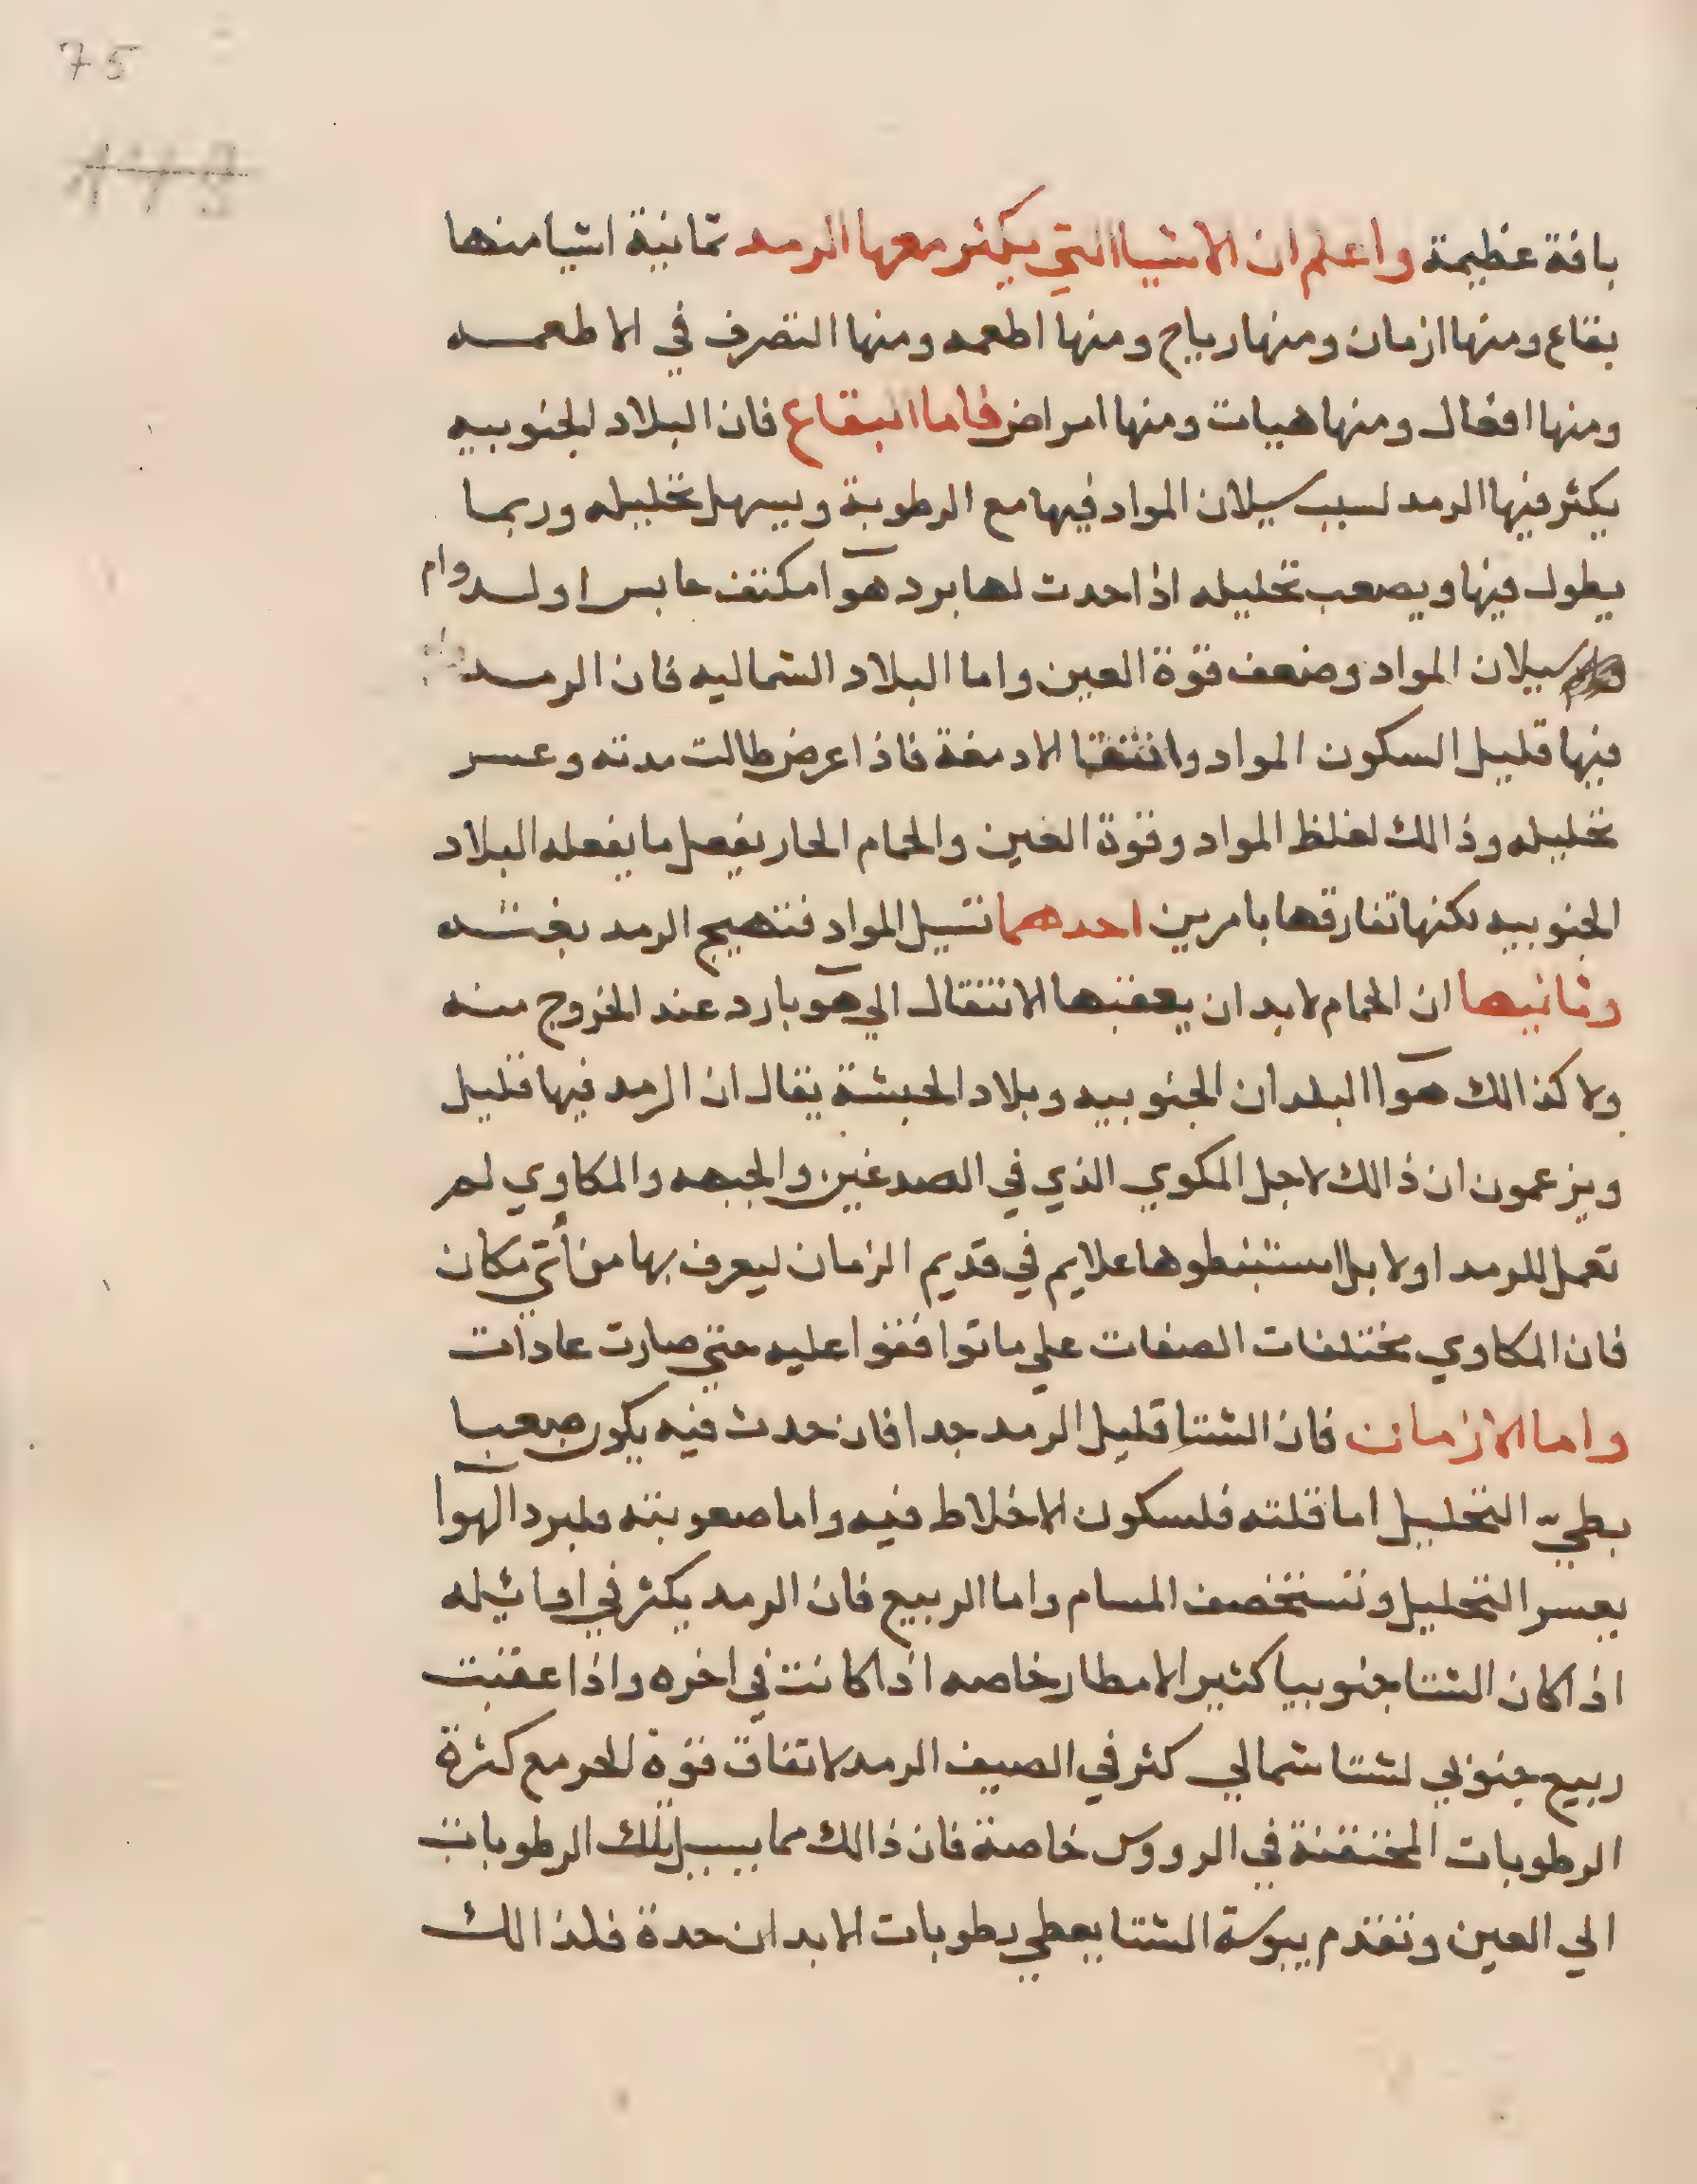 75
بافة عظيمة واعلم ان الاشيا التي يكثر معها الرمد ثمانية اشيا منها
بقاع ومنها ازمان ومنها رياح ومنها اطعمه ومنها التصرف في الاطعمـــه
ومنها افعال ومنها هيات ومنها امراض فاما البقاع فان البلاد الجنوبيه
يكثر فيها الرمد لسبب سيلان المواد فيها مع الرطوبة ويسهل تحليله وربما
يطول فيها ويصعب تحليله اذا حدث لها برد هوآ مكتف حابس او لـدوام
سيلان المواد وضعف قوة العين واما البلاد الشماليه فان الرمـــد
فيها قليل السكون المواد وانتقا الادمغة فاذا عرض طالت مدته وعسر
تحليله وذالك لغلظ المواد وقوة العين والحمام الحار يفعل ما يفعله البلاد
الجنوبيه لكنها تفارقها بامرين احدهما تسيل المواد فتهيج الرمد بغتــه
وثانيها ان الحمام لابد ان يعقبها الانتقال الي هوآ بارد عند الخروج منه
ولا كذالك هوآ البلدان الجنوبيه وبلاد الحبشة يقال ان الرمد فيها قليل
ويزعمون ان ذالك لاجل المكوي الذي في الصدغين والجبهه والمكاوي لم
تعمل للرمد اولا بل استنبطوها علايم في قديم الزمان ليعرف بها من أتي مكان
فان المكاوي مختلفات الصفات علي ما توافقوا عليه حتي صارت عادات
واما الازمان فان الشتا قليل الرمد جدا فان حدث فيه يكون صعبا
بطيّ التحليل اما قلته فلسكون الاخلاط فيه واما صعوبته فلبرد الهوآ
يعسر التحليل وتستخصف المسام واما الربيع فان الرمد يكثر في اوائيله
اذا كان الشتا جنوبيا كثير الامطار خاصه اذا كانت في اخره واذا عقبت
ربيع جنوبي لشتا شمالي كثر في الصيف الرمد لاتفاق قوة للحر مع كثرة
الرطوبات المختقنة في الرووس خاصة فان ذالك مما يسيل تلك الرطوبات
الي العين وتقدم يبوسة الشتا يعطي رطوبات الابدان حدة فلذالك